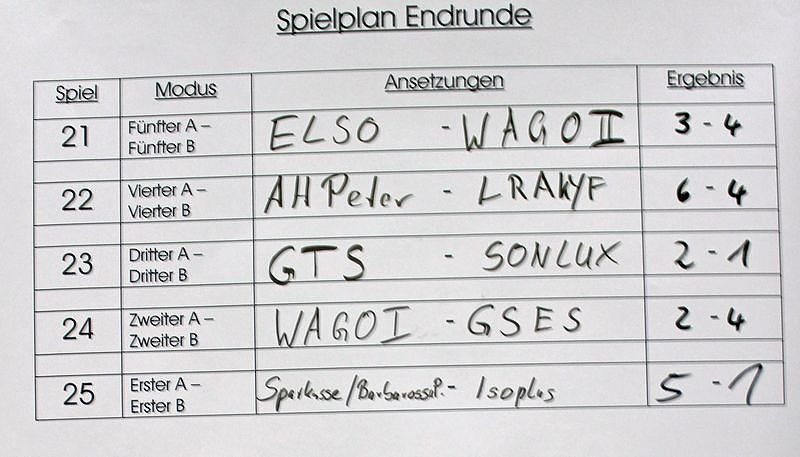 Spielplan Endrunde
Spiel Modus Ansetzungen Ergebnis
21 Fünfter A – ELSO - WAGO II 3 - 4
Fünfter B
22 Vierter A – AH Peter - LRAKYF 6 - 4
Vierter B
23 Dritter A – GTS - SONLUX 2 - 1
Dritter B
24 Zweiter A – WAGO I - GSES 2 - 4
Zweiter B
25 Erster A – Sparkasse/BarbarossaP. - Isoplus 5 - 1
Erster B